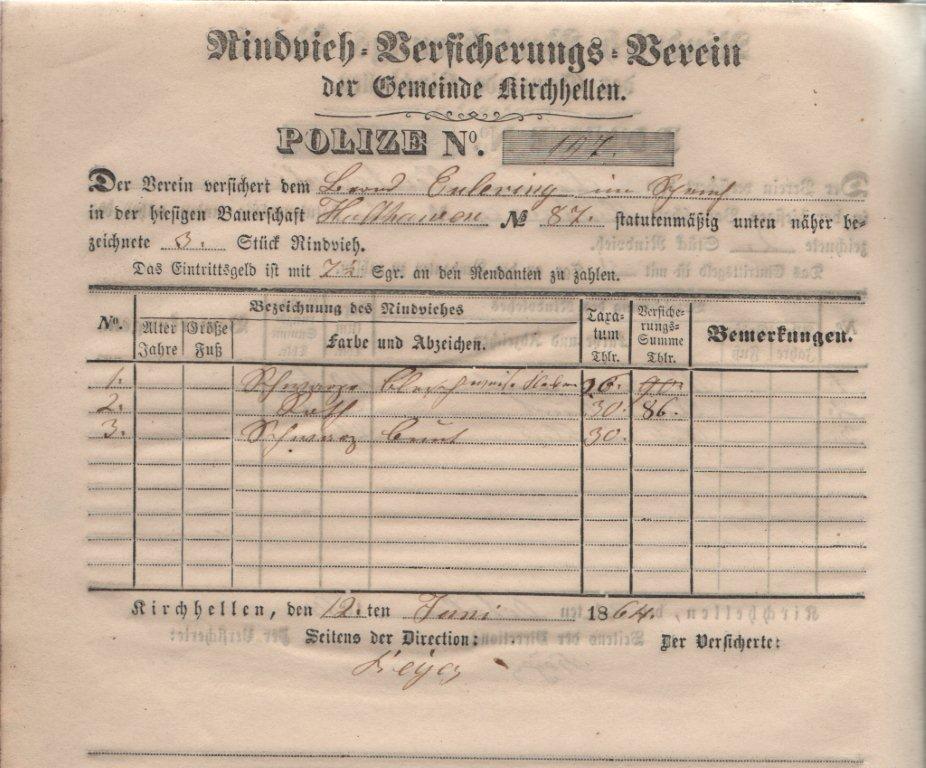 Rindvieh-Versicherungs-Verein
der Gemeinde Kirchhellen.
POLIZE No. 107.
Der Verein versichert dem Bernd Eulering im
in der hiesigen Bauerschaft № 87. statutenmäßig unten näher be-
zeichnete 3. Stück Rindvieh.
Das Eintrittsgeld ist mit 7½ Sgr. an den Rendanten zu zahlen.
No. Bezeichnung des Rindviehes Taxa-tum Thlr. Versiche-rungs-Summe Thlr. Bemerkungen.
Alter Jahre Größe Fuß Farbe und Abzeichen.
1. Schwarze 26.
2. Roth 30. 86.
3. Schwarz bunt 30.
Kirchhellen, den 12.ten Juni 1864.
Seitens der Direction: Der Versicherte: